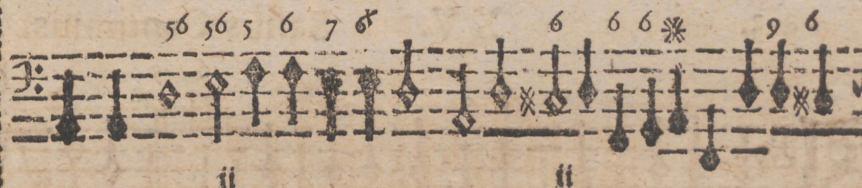 56 56 5 6 7 6 6 6 6 9 6
ij ij